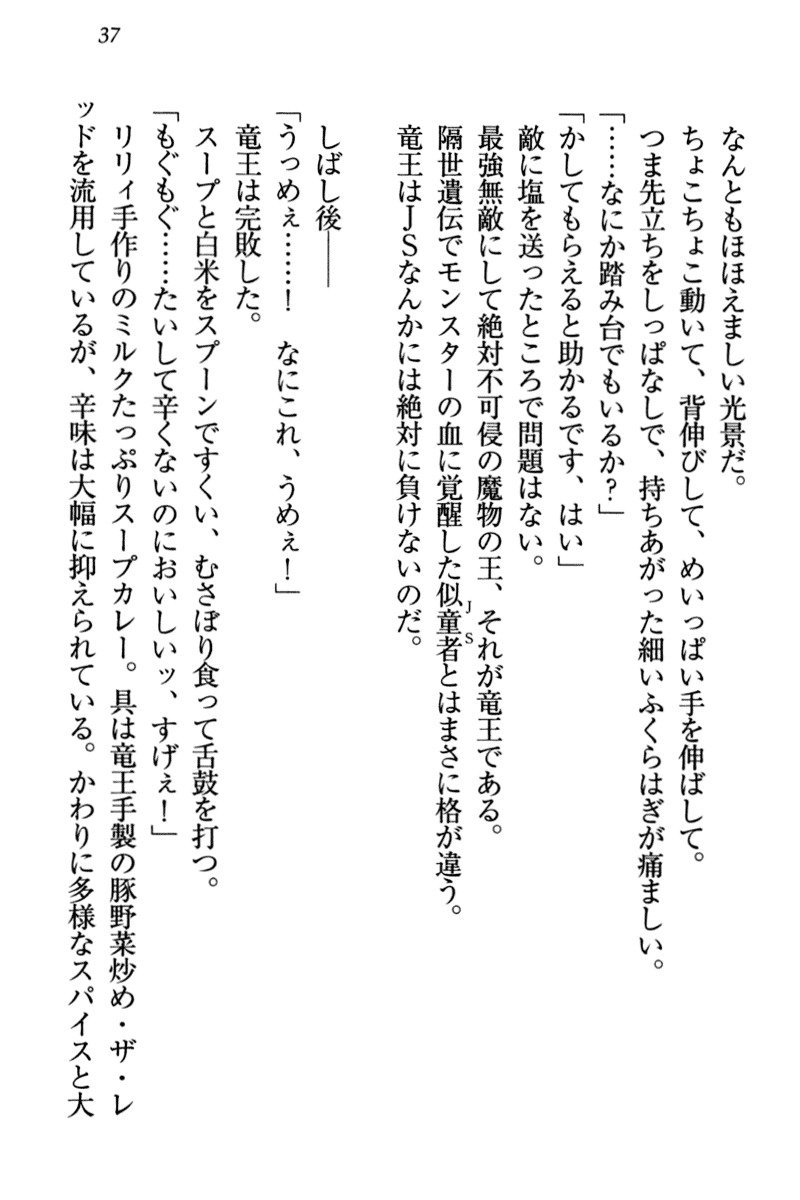 37
なんともほほえましい光景だ。
ちょこちょこ動いて、背伸びして、めいっぱい手を伸ばして。
つま先立ちをしっぱなしで、持ちあがった細いふくらはぎが痛ましい。
「……なにか踏み台でもいるか？」
「かしてもらえると助かるです、はい」
敵に塩を送ったところで問題はない。
最強無敵にして絶対不可侵の魔物の王、それが竜王である。
隔世遺伝でモンスターの血に覚醒した似童者とはまさに格が違う。
JS
竜王はＪＳなんかには絶対に負けないのだ。
しばし後――
「うっめぇ……！　なにこれ、うめぇ！」
竜王は完敗した。
スープと白米をスプーンですくい、むさぼり食って舌鼓を打つ。
「もぐもぐ……たいして辛くないのにおいしいッ、すげぇ！」
リリィ手作りのミルクたっぷりスープカレー。具は竜王手製の豚野菜炒め・ザ・レ
ッドを流用しているが、辛味は大幅に抑えられている。かわりに多様なスパイスと大